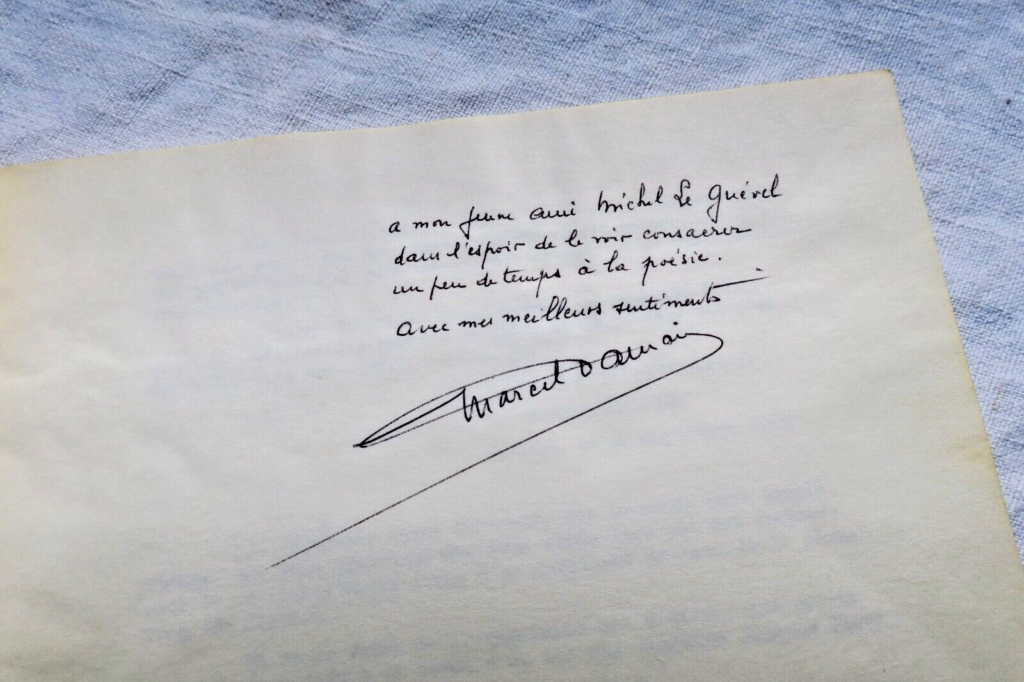 a mon jeune ami Michel Le Guével
dans l'espoir de le voir consacrer
un peu de temps à la poésie.
Avec mes meilleurs sentiments
Marcel